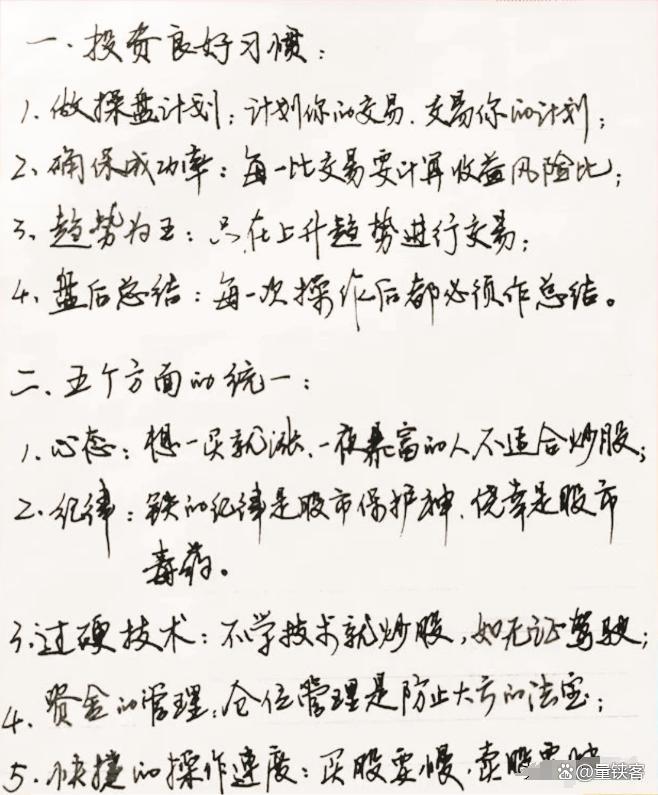 一、投资良好习惯：
1、做操盘计划：计划你的交易、交易你的计划；
2、确保成功率：每一比交易要计算收益风险比；
3、趋势为王：只在上升趋势进行交易；
4、盘后总结：每一次操作后都必须作总结。
二、五个方面的统一：
1、心态：想一买就涨、一夜暴富的人不适合炒股；
2、纪律：铁的纪律是股市保护神、侥幸是股市
毒药。
3、过硬技术：不学技术就炒股，如无证驾驶；
4、资金的管理：仓位管理是防止大亏的法宝；
5、快捷的操作速度：买股要慢、卖股要
@量铁客